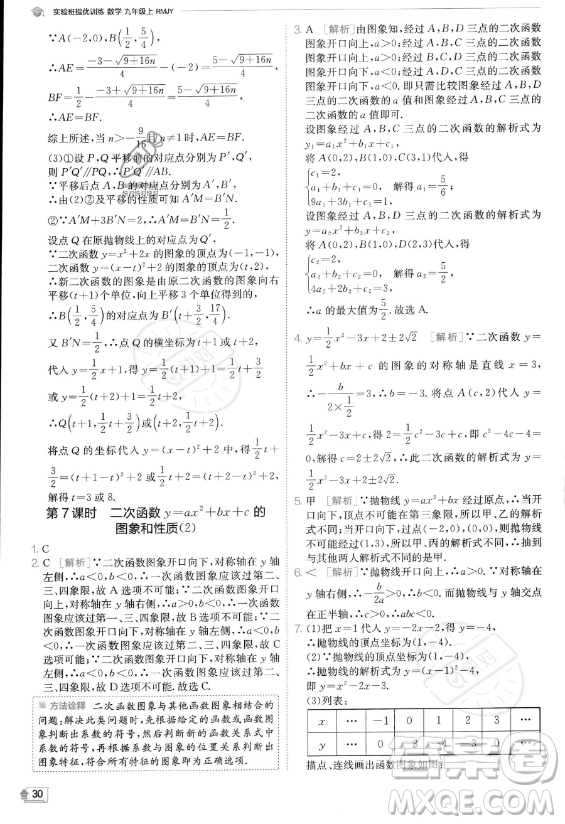 实验班提优训练 数学 九年级上 RMJY
∵A(-2,0),B(1/2,5/4),
∴AE=(-3-√(9+16n))/4-(-2)=(5-√(9+16n))/4,
BF=1/2-(-3+√(9+16n))/4=(5-√(9+16n))/4.
∴AE=BF.
综上所述,当n>-9/16且n≠1时,AE=BF.
(3)①设P,Q平移前的对应点分别为P′,Q′,
则P′Q′∥PQ.∴P′Q′∥AB.
∵平移后点A,B的对应点分别为A′,B′,
∴由(2)及平移的性质可知A′M=B′N.
②∵A′M+3B′N=2,∴A′M=B′N=1/2.
设点Q在原抛物线上的对应点为Q′,
∵二次函数y=x²+2x的图象的顶点为(-1,-1),
二次函数y=(x-t)²+2的图象的顶点为(t,2),
∴新二次函数的图象是由原二次函数的图象向右
平移(t+1)个单位,向上平移3个单位得到的.
∴B(1/2,5/4)的对应点为B′(t+3/2,17/4).
又B′N=1/2,∴点Q的横坐标为t+1或t+2.
代入y=1/2x+3,得y=1/2t+7/2或y=1/2t+4.
∴Q(t+1,1/2t+7/2)或(t+2,1/2t+4).
将点Q的坐标代入y=(x-t)²+2中,得1/2t+7/2
=(t+1-t)²+2或1/2t+4=(t+2-t)²+2.
解得t=3或8.
第7课时 二次函数y=ax²+bx+c的
图象和性质(2)
1. C
2. C [解析]∵二次函数图象开口向下,对称轴在y轴
左侧,∴a<0,b<0,∴一次函数图象应该过第二、
三、四象限,故A选项不可能;∵二次函数图象开
口向上,对称轴在y轴右侧,∴a>0,b<0,∴一次函数
图象应该过第一、三、四象限,故B选项不可能;
∵二次函数图象开口向下,对称轴在y轴左侧,
∴a<0,b<0,∴一次函数图象应该过第二、三、四象限,
故C选项可能;∵二次函数图象开口向下,对称轴
在y轴左侧,∴a<0,b<0,∴一次函数图象应该过第二、
三、四象限,故D选项不可能.故选C.
方法诠释 二次函数与其他函数图象相结合的
问题:解决此类问题时,先根据给定的函数或函数
图象判断出系数的符号,然后判断新的函数关系式中
系数的符号,再根据系数与图象的位置关系判断出
图象特征,符合所有特征的图象即为正确图象.
30
3. A [解析]由图象知,经过A,B,D三点的二次函数
图象开口向上,a>0;经过A,B,C三点的二次函数
图象开口向上,a>0;经过B,C,D三点的二次函数
图象开口向下,a<0;经过A,D,C三点的二次函数
图象开口向下,a<0.即只需比较图象经过A,B,D
三点的二次函数的a值和图象经过A,B,C三点的
二次函数的a值即可.
设图象经过A,B,C三点的二次函数的解析式为
y₁=a₁x²+b₁x+c₁,
将A(0,2),B(1,0),C(3,1)代入,得
{c₁=2, a₁+b₁+c₁=0, 9a₁+3b₁+c₁=1. 解得a₁=5/6.
设图象经过A,B,D三点的二次函数的解析式为
y=a₂x²+b₂x+c₂,
将A(0,2),B(1,0),D(2,3)代入,得
{c₂=2, a₂+b₂+c₂=0, 4a₂+2b₂+c₂=3. 解得a₂=5/2.
∴a的最大值为5/2.故选A.
4. y=1/2x²-3x+2±2√2 [解析]∵二次函数y=
1/2x²+bx+c的图象的对称轴是直线x=3,
∴-b/(2×1/2)=3,∴b=-3.将点A(c,2)代入y=
1/2x²-3x+c,得2=1/2c²-3c+c,即c²-4c-4=0,
解得c=2±2√2.∴此二次函数的解析式为y=
1/2x²-3x+2±2√2.
5. 甲 [解析]∵抛物线y=ax²+bx经过原点,∴当开
口向下时,顶点不可能在第三象限,所以甲的说法错
误;当抛物线过点(-2,0),(0,0),且开口向上时,
顶点在第三象限,所以甲、乙的函数图象的开口方
向均向上,所以说法错误的是甲.
6. < [解析]∵抛物线开口向上,∴a>0.∵对称轴
在y轴右侧,∴-b/2a>0,∴b<0.∵抛物线与y轴的交点
在正半轴,∴c>0,∴abc<0.
7. (1)把x=1代入y=x-5,得y=-4,
∴抛物线的顶点坐标为(1,-4).
(2)∵抛物线的顶点坐标为(1,-4),
∴抛物线的解析式为y=(x-1)²-4.
(3)列表:
x … -1 0 1 2 3 …
y … 0 -3 -4 -3 0 …
描点、连线画出函数图象如图: